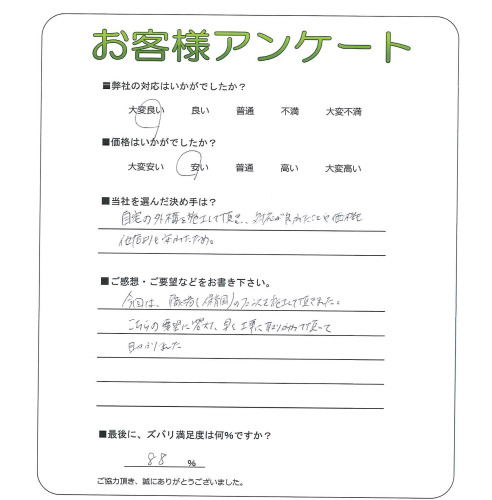 お客様アンケート
■弊社の対応はいかがでしたか？
大変良い 良い 普通 不満 大変不満
■価格はいかがでしたか？
大変安い 安い 普通 高い 大変高い
■当社を選んだ決め手は？
自宅の外構を施工して頂き、対応が良かったことや価格も
他店よりも安かったため。
■ご感想・ご要望などをお書き下さい。
今回は、職場(保育園)のフェンスを施工して頂きました。
こちらの要望に答えて、早く工事に取りかかって頂いて
助かりました
■最後に、ズバリ満足度は何%ですか？
88 %
ご協力頂き、誠にありがとうございました。